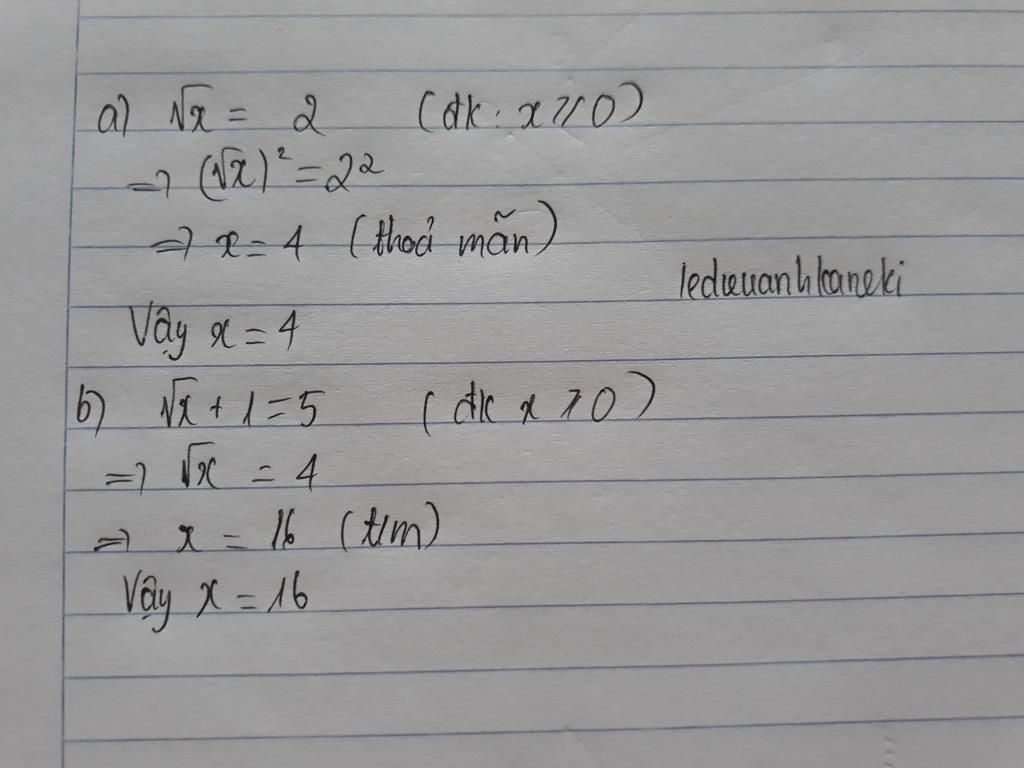 a) √x = 2 (đk: x ⩾ 0)
=> (√x)² = 2²
=> x = 4 (thoả mãn)
leduuanhkaneki
Vậy x = 4
b) √x + 1 = 5 (đk x ⩾ 0)
=> √x = 4
=> x = 16 (t/m)
Vậy x = 16